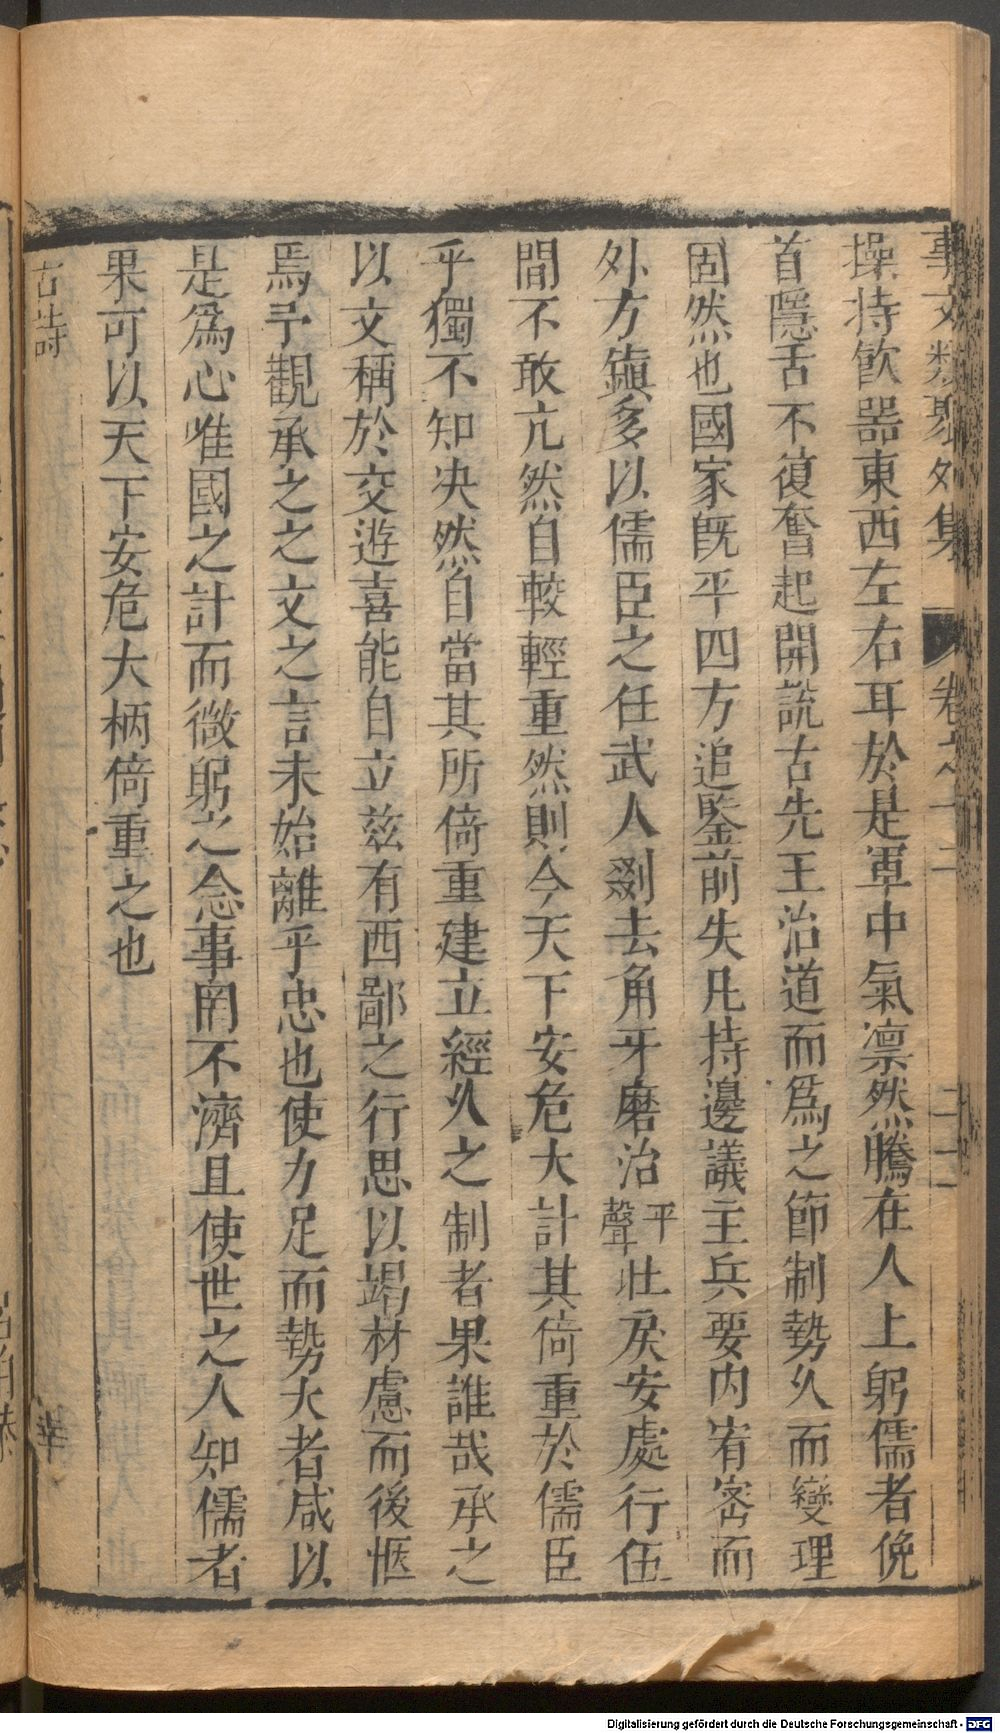 事文類聚外集 卷之十二 二十一
操持飲噐東西左右耳於是軍中氣凛然騰在人上躬儒者俛
首隱舌不復奮起開說古先王治道而爲之節制勢久而變理
固然也國家旣平四方追鑒前失凡持邊議主兵要內宥宻而
外方鎭多以儒臣之任武人剟去角牙磨治平聲壯戾安處行伍
間不敢亢然自較輕重然則今天下安危大計其倚重於儒臣
乎獨不知决然自當其所倚重建立經久之制者果誰哉承之
以文稱於交遊喜能自立兹有西鄙之行思以竭材慮而後愜
焉予觀承之之文之言未始離乎忠也使力足而勢大者咸以
是爲心唯國之計而微躬之念事罔不濟且使世之人知儒者
果可以天下安危大柄倚重之也
古詩
Digitalisierung gefördert durch die Deutsche Forschungsgemeinschaft - DFG